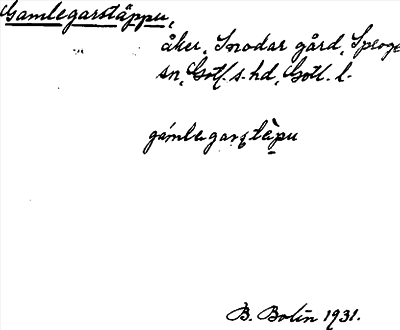 Gamlegarstäppu,
åker, Snodar gård, Sproge
sn, Gotl. s. hd, Gotl. l.
gámlegarstä̀pu
B. Bolin 1931.